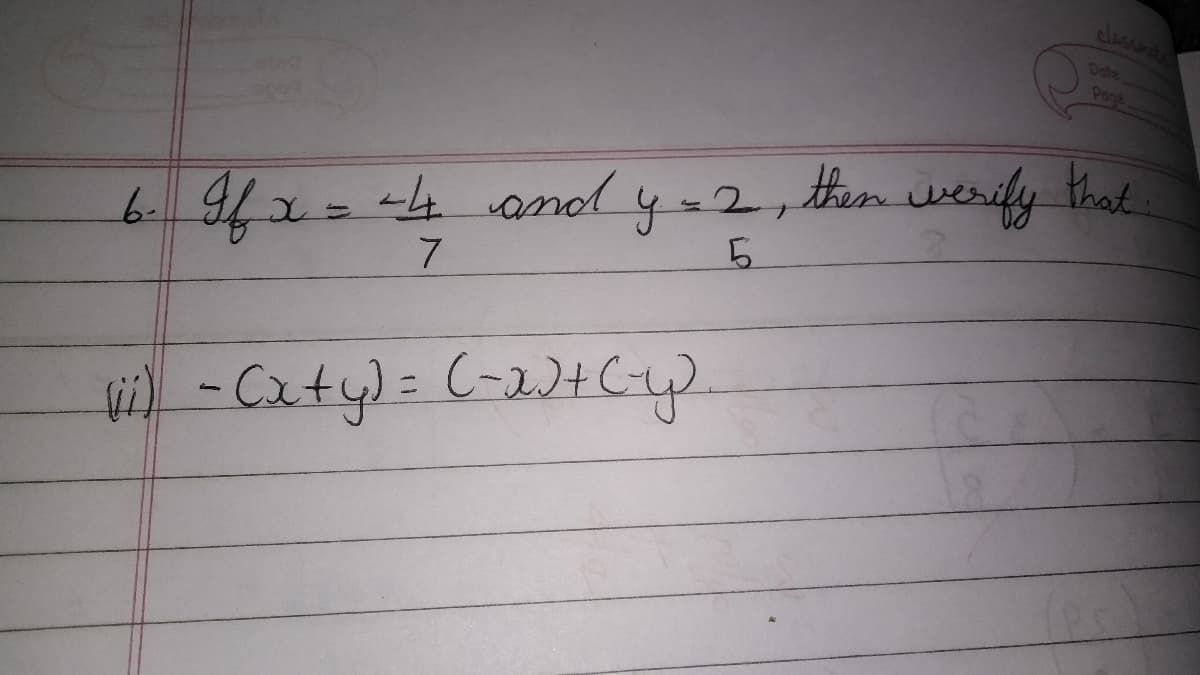 classmate
Date
Page
6. If x = -4/7 and y = 2/5, then verify that
(ii) - (x+y) = (-x)+(-y).